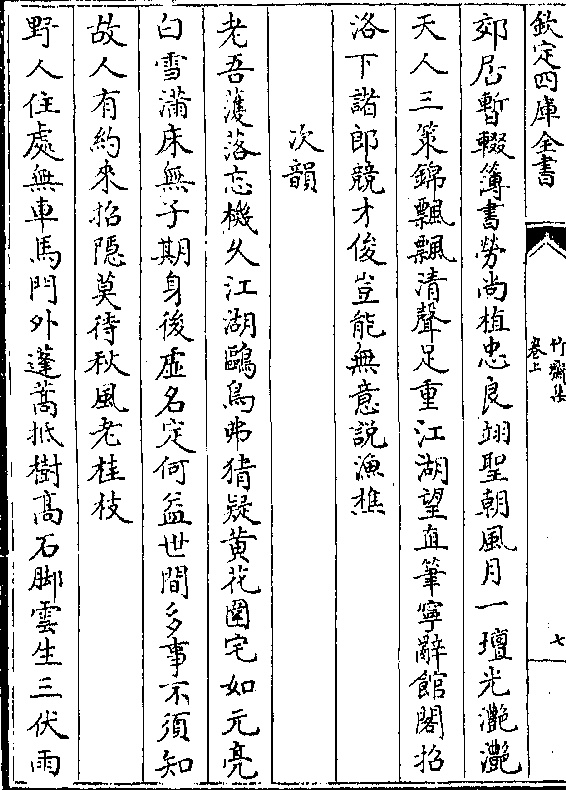 欽定四庫全書
竹齋集
卷上
七
郊居暫輟簿書勞尚植忠良翊聖朝風月一壇光灔灔
天人三策錦飄飄清聲足重江湖望直筆寧辭館閣招
洛下諸郎競才俊豈能無意說漁樵
次韻
老吾濩落忘機久江湖鷗鳥弗猜疑黄花園宅如元亮
白雪滿床無子期身後虚名定何益世間多事不須知
故人有約來招隠莫待秋風老桂枝
野人住處無車馬門外蓬蒿抵樹髙石脚雲生三伏雨